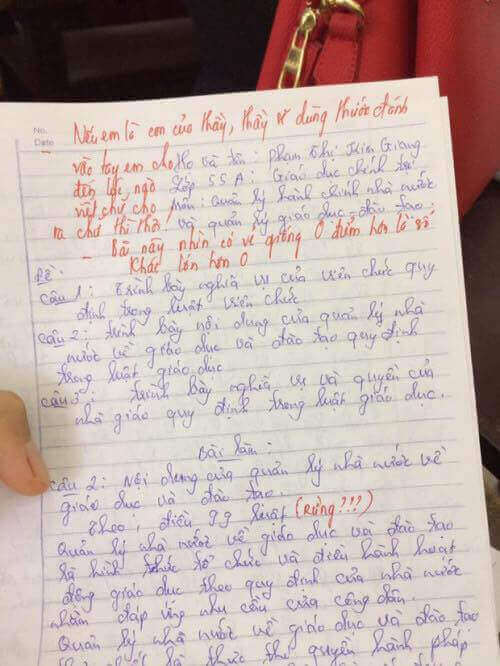 No.
Date
Nếu em là con của thầy, thầy sẽ dùng thước đánh
- vào tay em cho Họ và tên: Phạm Thị Kiên Giang
đến lúc nào Lớp 55A: Giáo dục chính trị
viết chữ cho Môn: Quản lý hành chính nhà nước
ra chữ thì thôi. và quản lý giáo dục - đào tạo.
- Bài này nhìn có vẻ giống 0 điểm hơn là số
khác lớn hơn 0
Đề:
Câu 1: Trình bày nghĩa vụ của viên chức quy
định trong luật viên chức
Câu 2: Trình bày nội dung của quản lý nhà
nước về giáo dục và đào tạo quy định
trong luật giáo dục
Câu 3: Trình bày nghĩa vụ và quyền của
nhà giáo quy định trong luật giáo dục.
Bài làm:
Câu 2: Nội dung của quản lý nhà nước về
giáo dục và đào tạo.
Theo, điều 99 luật (Rừng???)
Quản lý nhà nước về giáo dục và đào tạo
là hình thức tổ chức và điều hành hoạt
động giáo dục theo quy định của nhà nước
nhằm đáp ứng nhu cầu của công dân.
Quản lý nhà nước về giáo dục và đào tạo
là thực thi quyền hành pháp